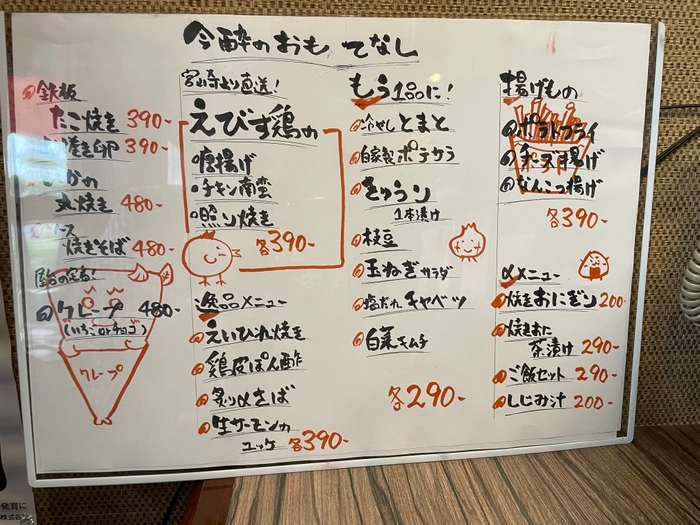 今酔のおもてなし
鉄板
たこ焼き 390-
焼き卵 390-
いかの
丸焼き 480-
ソース
焼きそば 480-
屋台の定番!
クレープ 480-
(いちごorチョコ)
クレープ
宮崎より直送!
えびす鶏の
・唐揚げ
・チキン南蛮
・照り焼き
各390-
逸品メニュー
えいひれ焼き
鶏皮ぽん酢
炙りさば
生サーモンの
ユッケ 各390-
もう1品に!
冷やしとまと
自家製ポテサラ
きゅうり
1本漬け
枝豆
玉ねぎサラダ
塩だれキャベツ
白菜キムチ
各290-
揚げもの
ポテトフライ
チーズ揚げ
なんこつ揚げ
各390-
〆メニュー
焼きおにぎり 200-
焼きおに
茶漬け 290-
ご飯セット 290-
しじみ汁 200-
発育に
株式会社